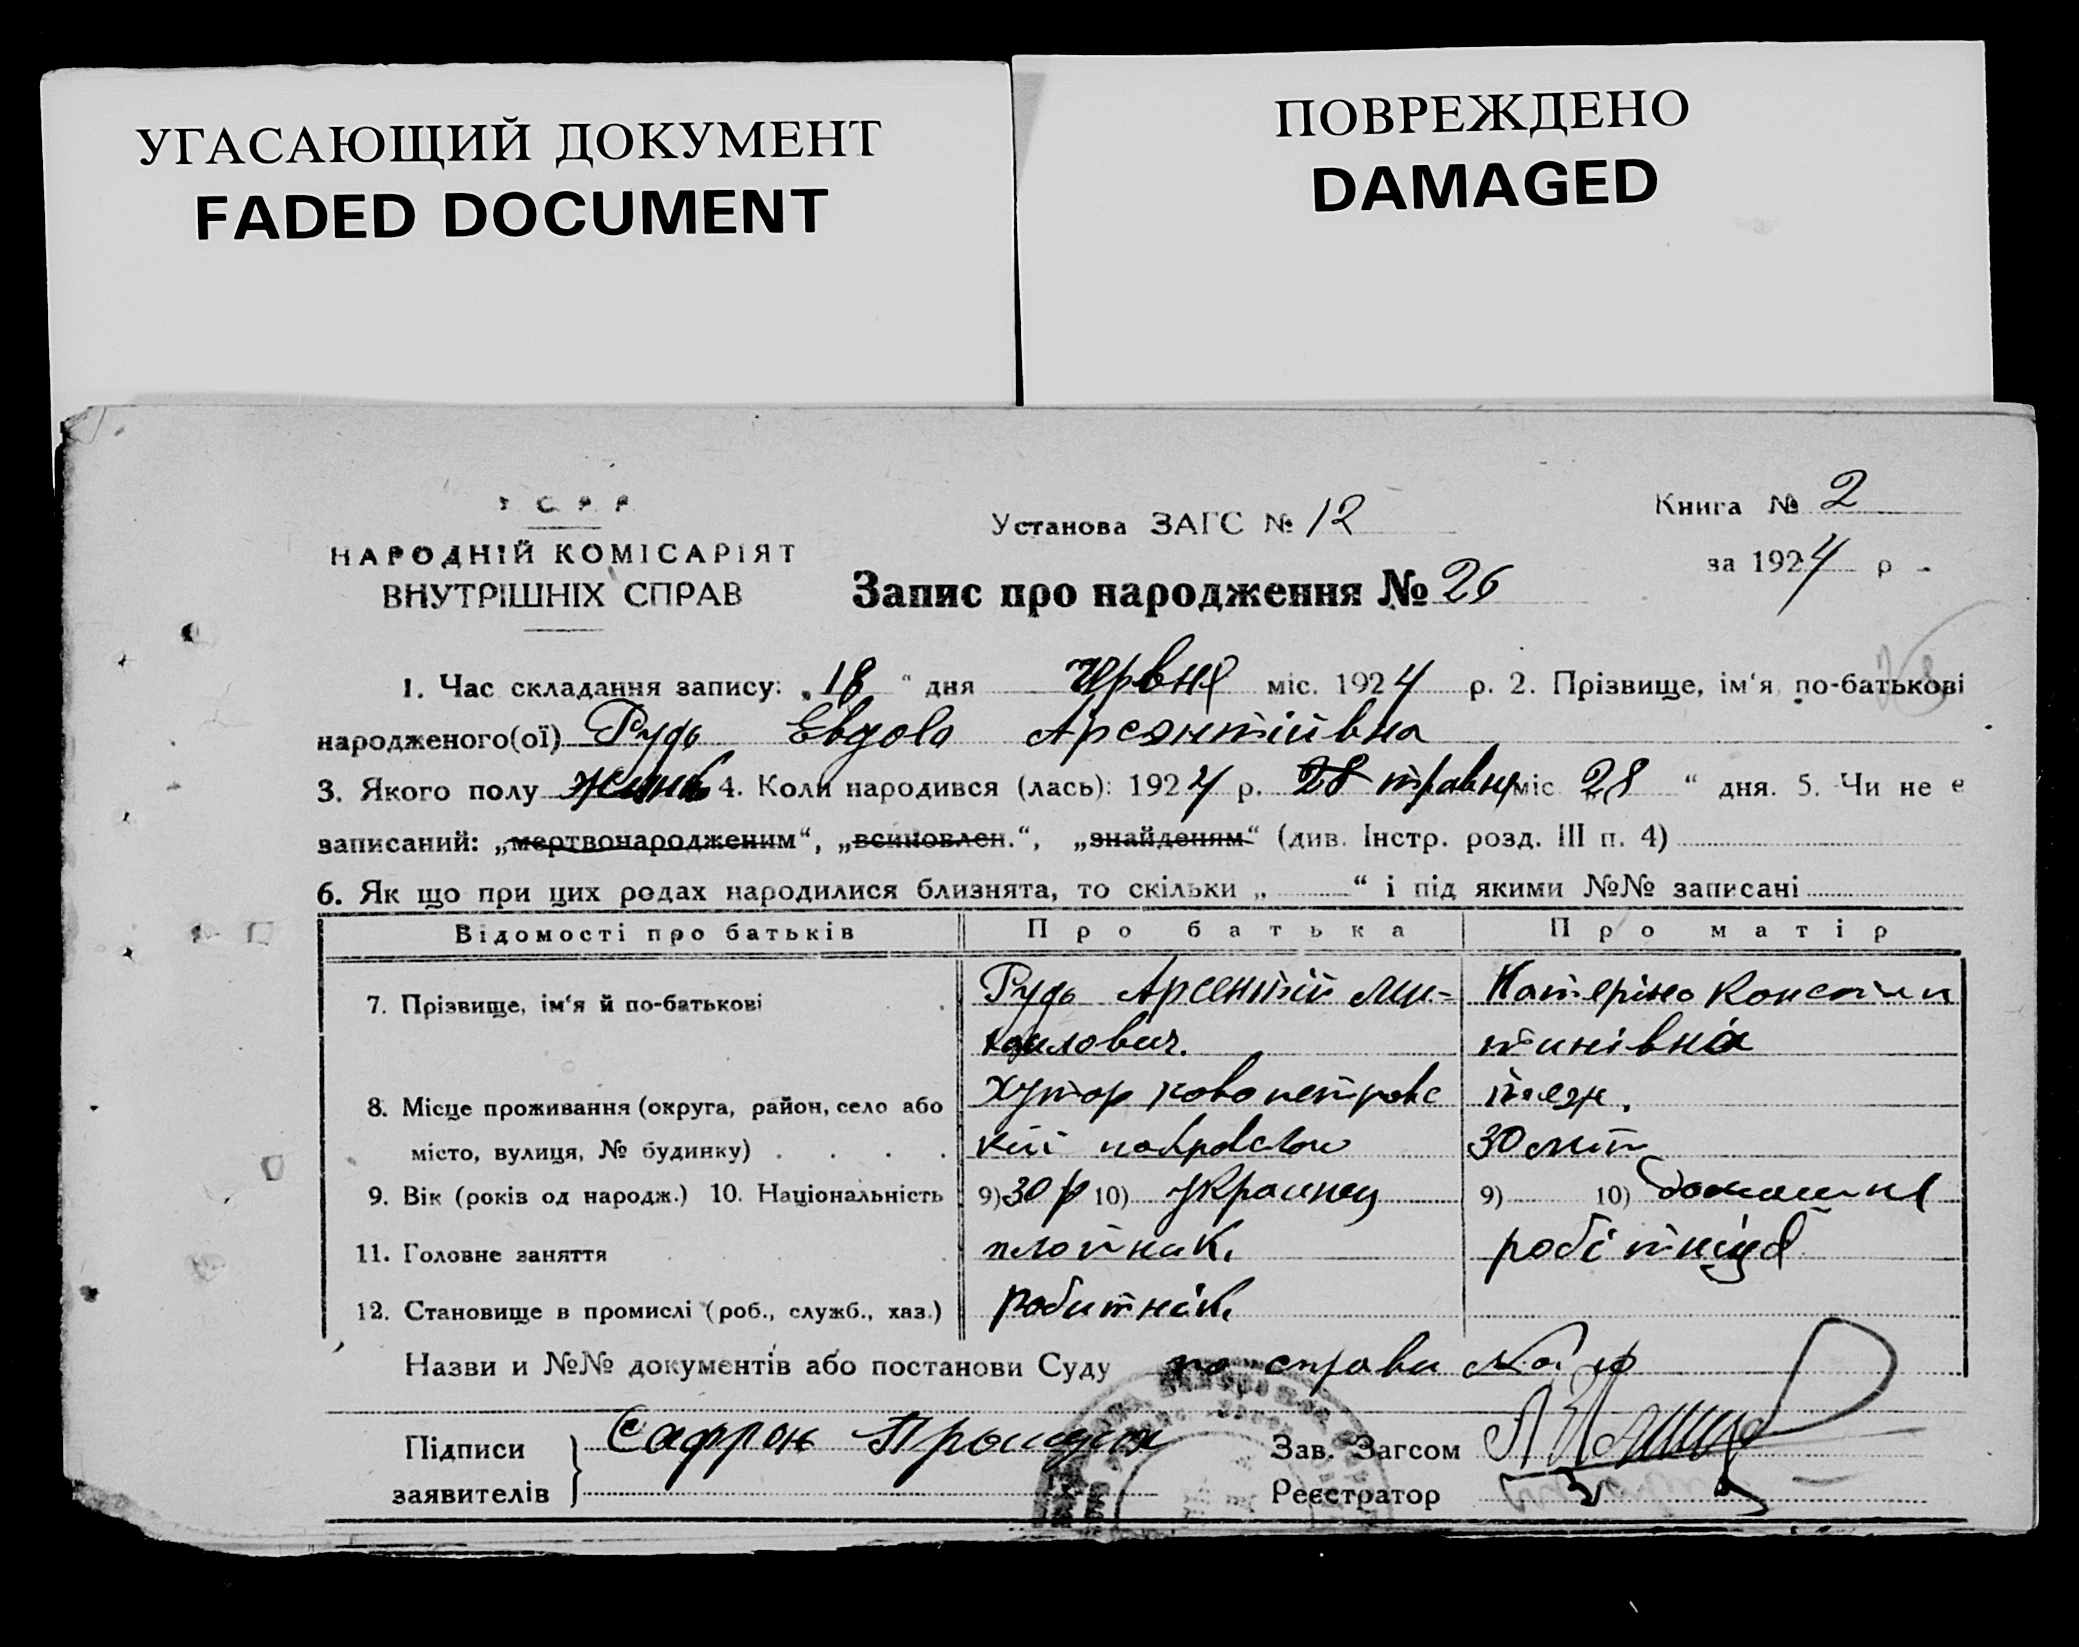 УГАСАЮЩИЙ ДОКУМЕНТ
FADED DOCUMENT
ПОВРЕЖДЕНО
DAMAGED
УСРР
НАРОДНІЙ КОМІСАРІЯТ
ВНУТРІШНІХ СПРАВ
Установа ЗАГС № 12
Книга № 2
за 1924 р
Запис про народження № 26
1. Час складання запису: „18“ дня червня міс. 1924 р. 2. Прізвище, ім‘я, по-батькові
народженого(ої) Рудь Евдокія Арсентіївна
3. Якого полу жіноч 4. Коли народився (лась): 1924 р. 28 травня міс „28“ дня. 5. Чи не є
записаний: „мертвонародженим“, „всиновлен.“, „знайденям“ (див. Інстр. розд. III п. 4)
6. Як що при цих родах народилися близнята, то скільки „ “ і під якими №№ записані
Відомості про батьків
Про батька
Про матір
7. Прізвище, ім‘я й по-батькові
Рудь Арсентій Ми-
хайлович.
Катеріна Констан
тинівна
8. Місце проживання (округа, район, село або
місто, вулиця, № будинку)
Хутор новопетровс
кій
теж.
30 літ
9. Вік (років од народж.) 10. Національність
9) 30 р 10) Украинец
9) 10) домашня
11. Головне заняття
плотник.
робітниця
12. Становище в промислі (роб., служб., хаз.)
робитнік.
Назви и №№ документів або постанови Суду по справи
Підписи
заявителів
Сафрон
Зав. Загсом
Реєстратор